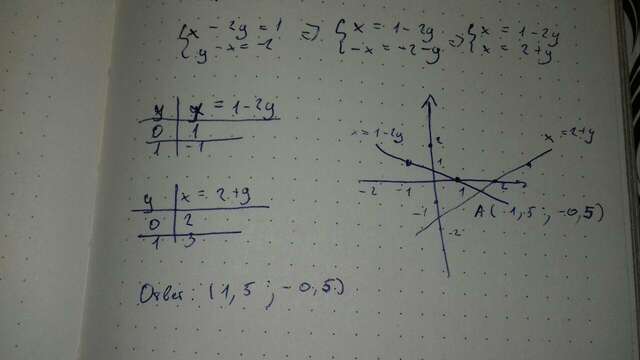 {x - 2y = 1 => {x = 1-2y => {x = 1-2y
{y - x = -2 {-x = -2-y {x = 2+y
y | x = 1-2y
0 | 1
1 | -1
y | x = 2+y
0 | 2
1 | 3
x=1-2y
x=2+y
2
1
-2 -1 1 2
-1
-2
A(1,5 ; -0,5)
Ответ: (1,5 ; -0,5)